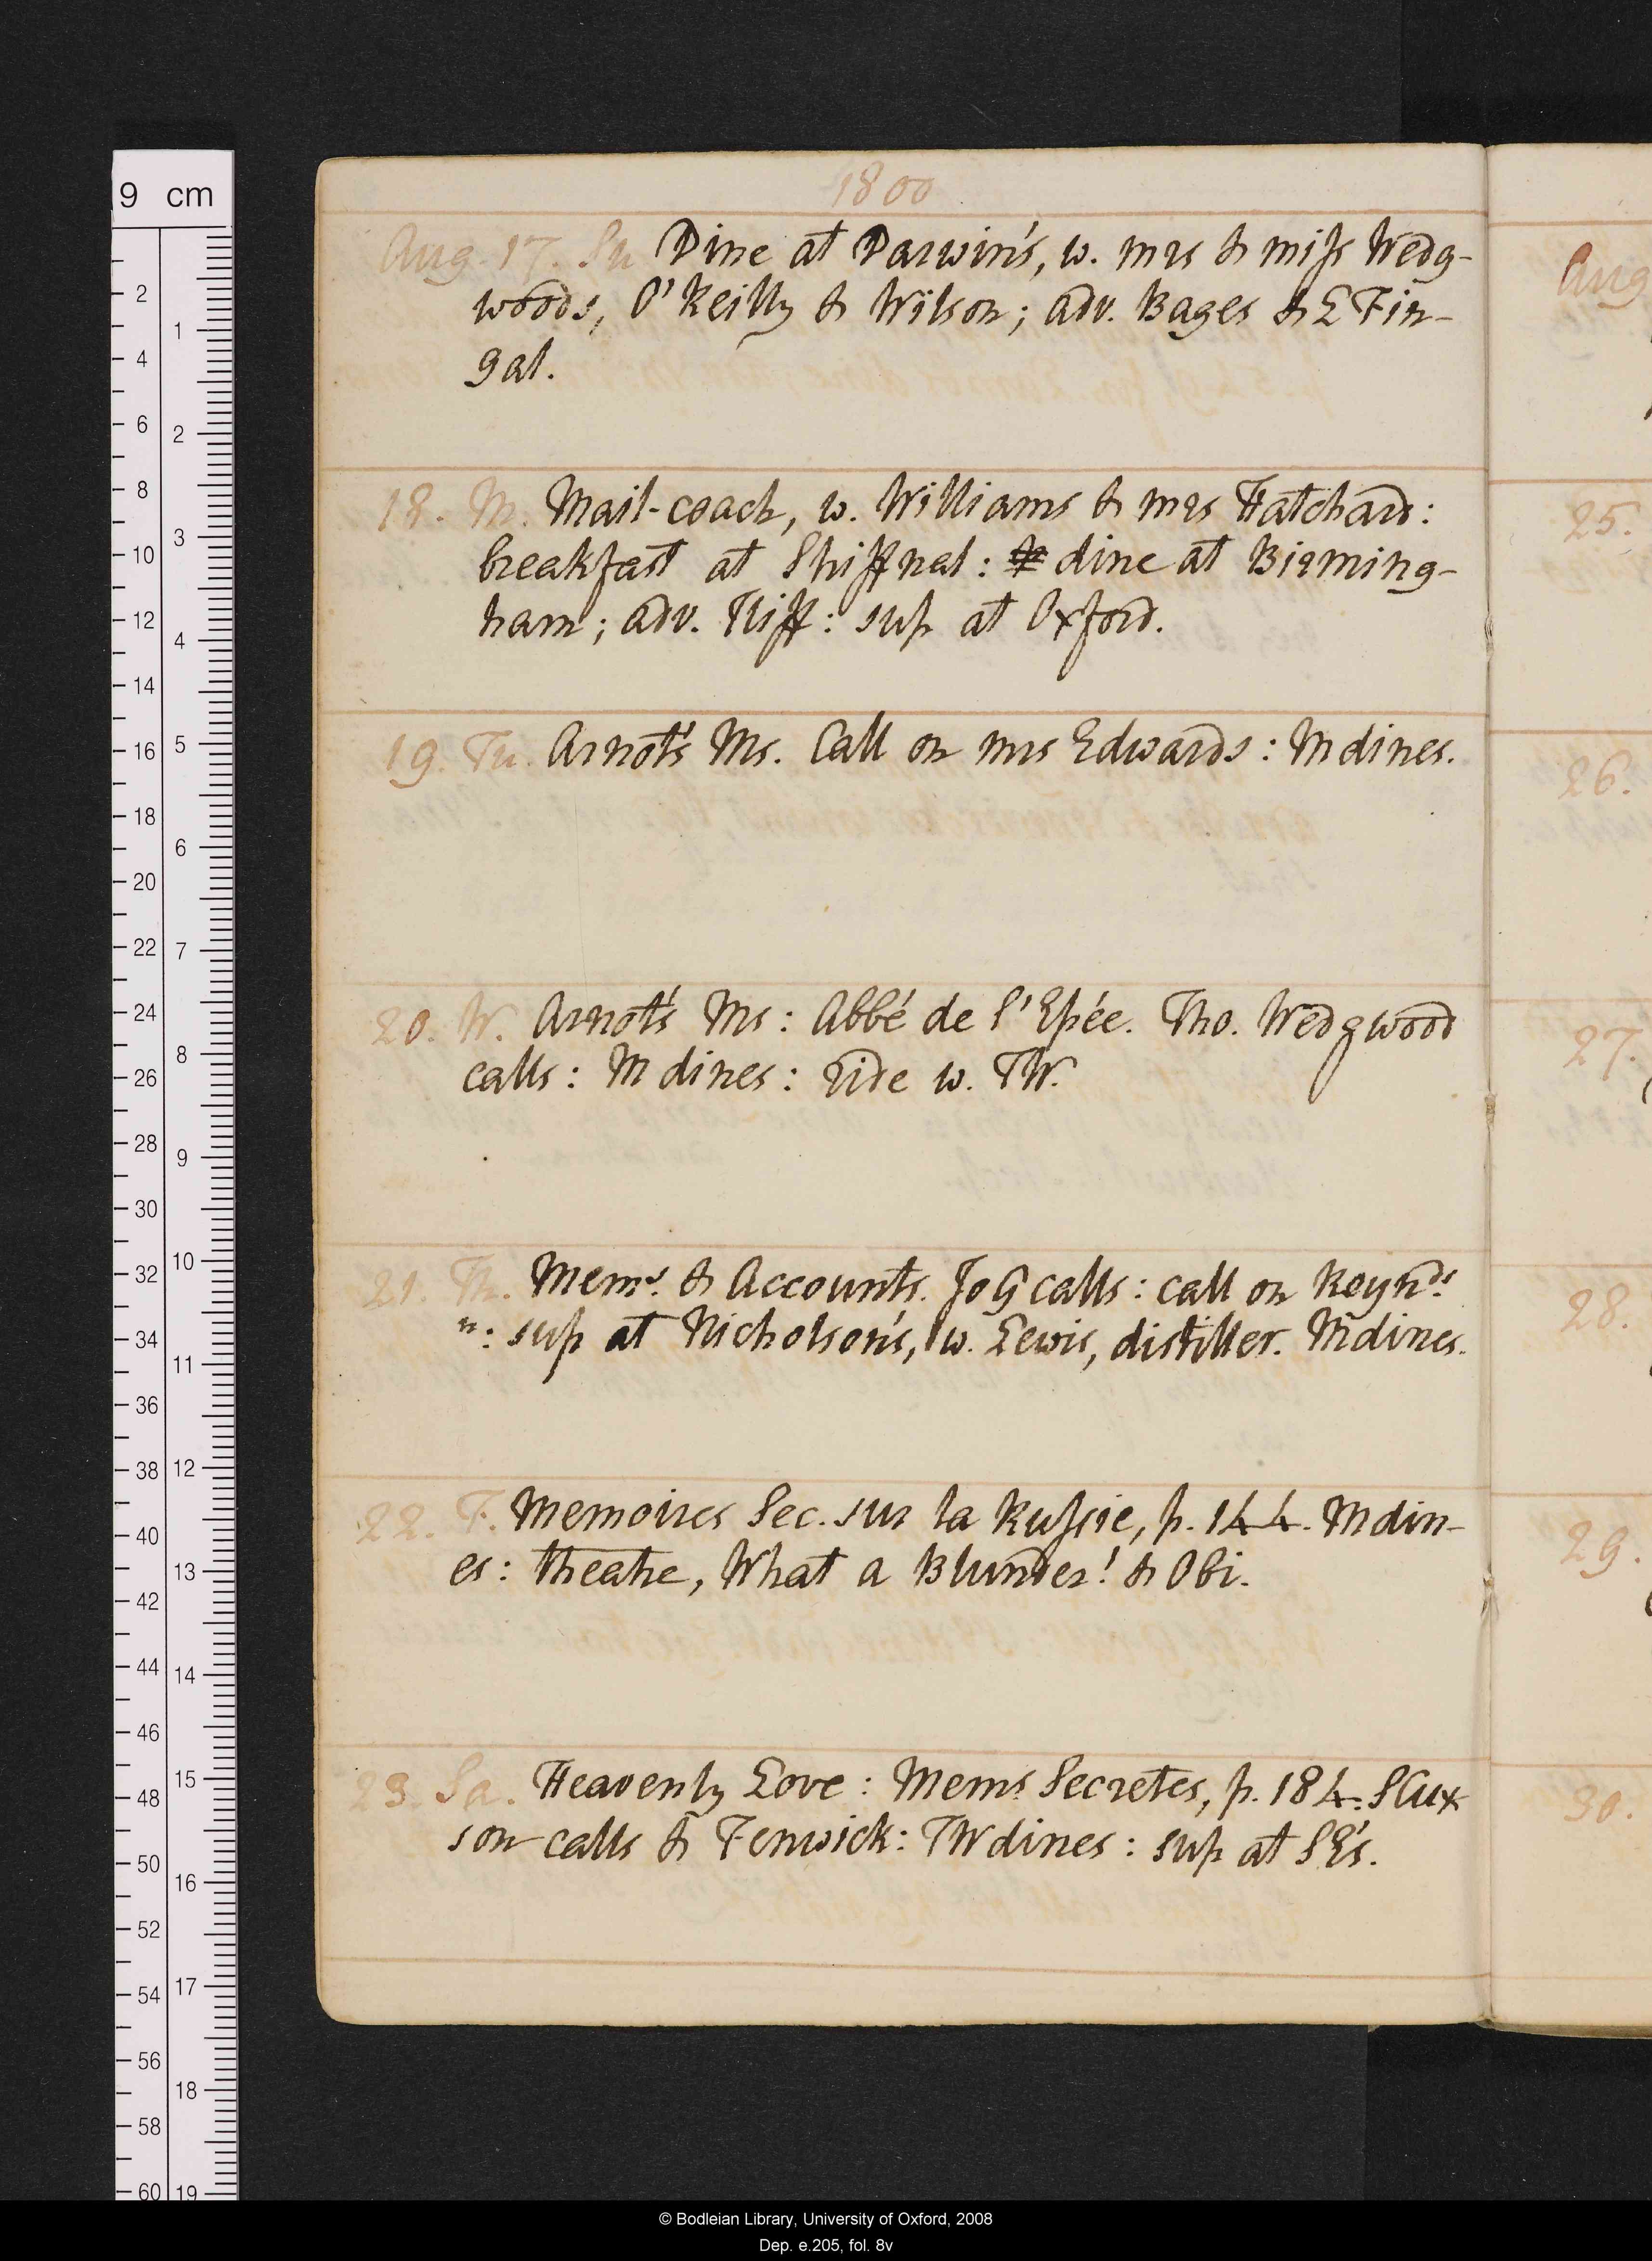 1800
Aug. 17. Su Dine at Darwin's, w. mrs & miss Wedg-
woods, O'Reilly & Wilson; adv. Bages & L Fin-
gal.
18. M. Mail-coach, w. Williams & mrs Hatchard:
breakfast at Shiffnal: dine at Birming-
ham; adv. Iliff: sup at Oxford.
19. Tu. Arnot's Ms. Call on mrs Edwards: M dines.
20. W. Arnot's Ms: Abbé de l'Epée. Tho. Wedgwood
calls: M dines: ride w. TW.
21. Th. Mems. & Accounts. Jo G calls: call on Reynds.
n: sup at Nicholson's, w. Lewis, distiller. M dines.
22. F. Memoires Sec. sur la Russie, p. 144. M din-
es: theatre, What a Blunder! & Obi.
23. Sa. Heavenly Love: Mems Secretes, p. 184. Clux
son calls & Fenwick: TW dines: sup at SE's.
Aug
25.
26.
27.
28.
29.
30.
9 cm
2 4 6 8 10 12 14 16 18 20 22 24 26 28 30 32 34 36 38 40 42 44 46 48 50 52 54 56 58 60
1 2 3 4 5 6 7 8 9 10 11 12 13 14 15 16 17 18 19
© Bodleian Library, University of Oxford, 2008
Dep. e.205, fol. 8v